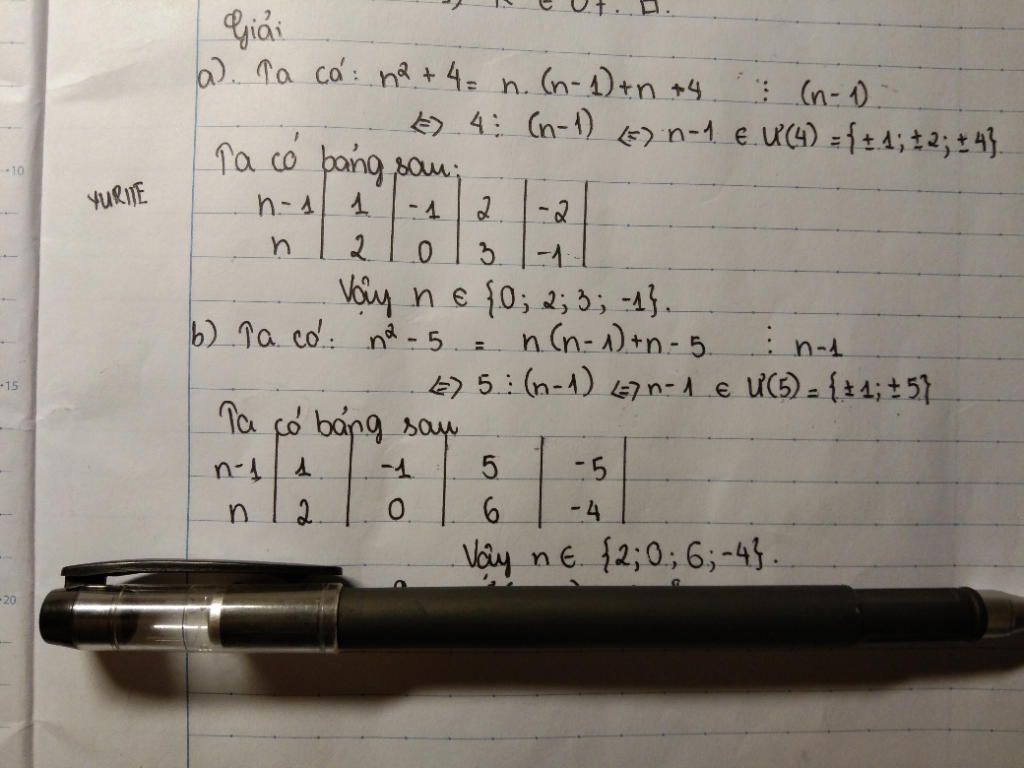 Giải
a). Ta cá: n² + 4 = n. (n-1)+n +4 ⋮ (n-1)
10
<=> 4 ⋮ (n-1) <=> n-1 ∈ Ư(4) = {±1; ±2; ±4}.
Ta có bảng sau:
YURIIE
n-1 | 1 | -1 | 2 | -2 |
n | 2 | 0 | 3 | -1 |
Vậy n ∈ {0; 2; 3; -1}.
b) Ta có: n² - 5 = n(n-1)+n-5 ⋮ n-1
15
<=> 5 ⋮ (n-1) <=> n-1 ∈ Ư(5) = {±1; ±5}
Ta có bảng sau
n-1 | 1 | -1 | 5 | -5 |
n | 2 | 0 | 6 | -4 |
Vậy n ∈ {2; 0; 6; -4}.
20